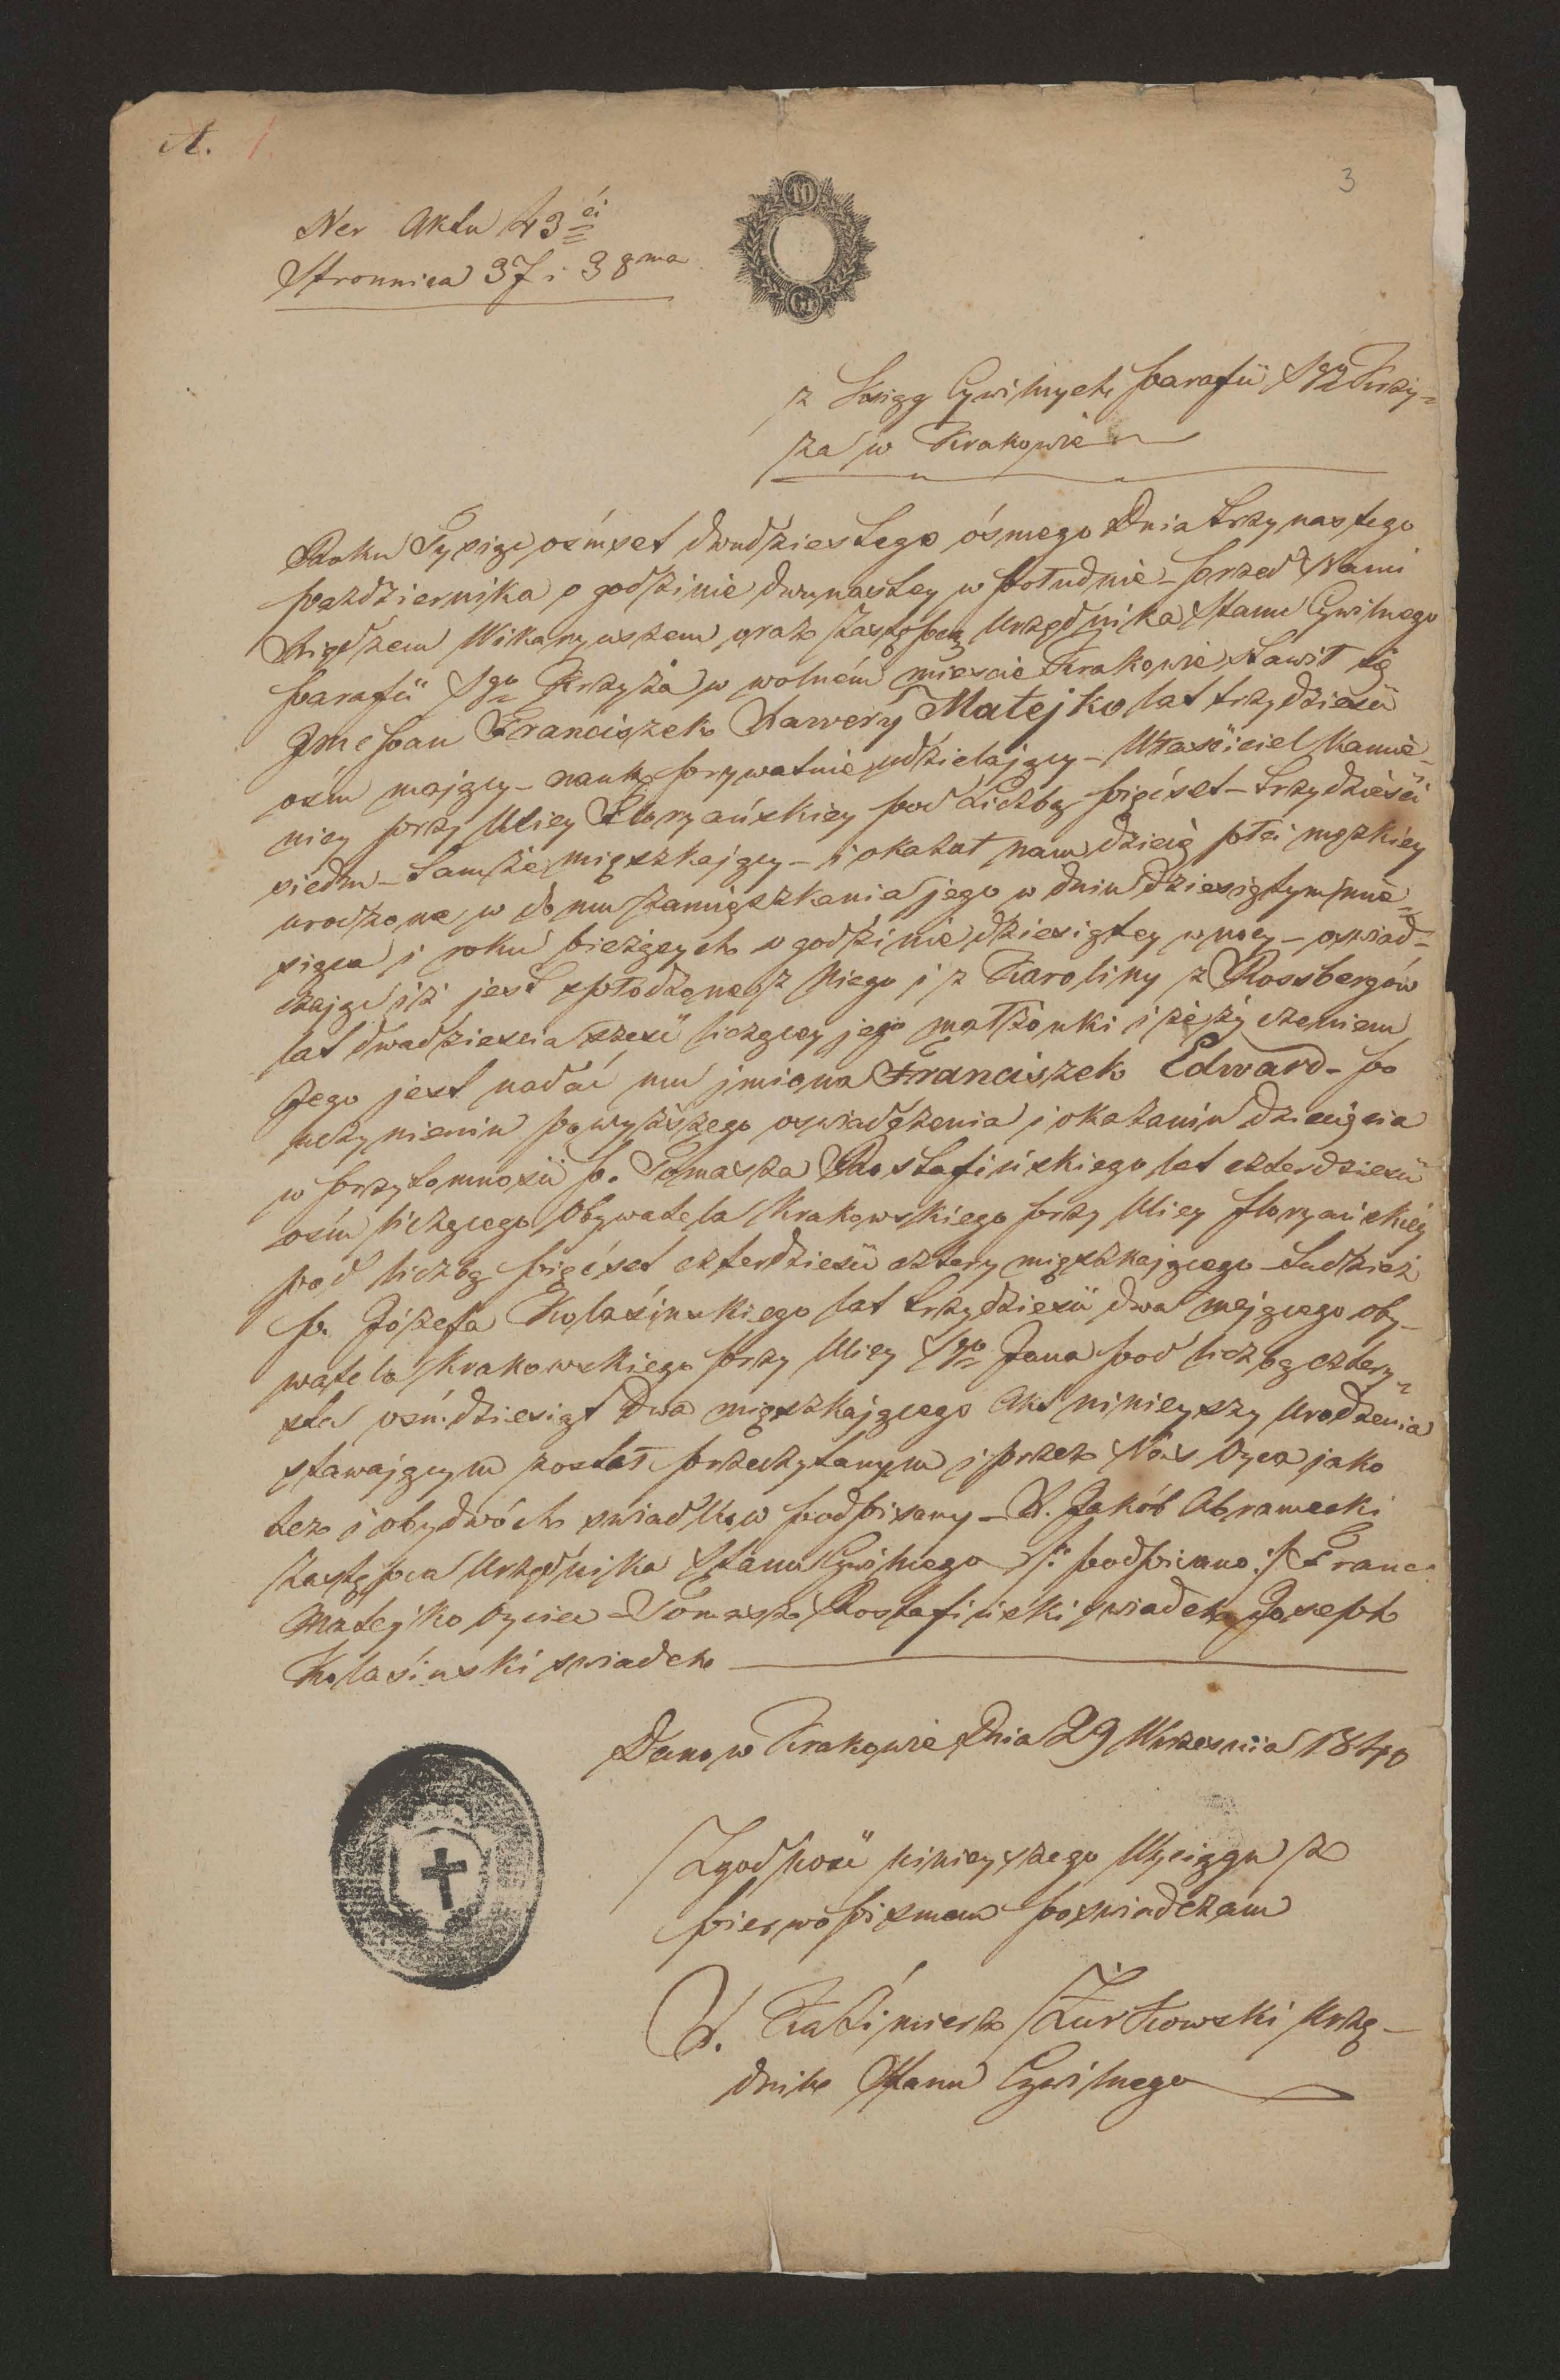 A. 1
3
10
Gr
Ner Aktu 43ci
Stronnica 37 i 38ma
z Xsiąg Cywilnych parafii Sgo Krzy=
ża w Krakowie
Roku Tysiąc ośmset dwudziestego ósmego Dnia trzynastego
pazdziernika o godzinie dwunastey w południe – przed Nami
Xiędzem Wikaryuszem oraz Zastępcą Urzędnika Stanu Cywilnego
parafii Sgo Krzyża w wolném miescie Krakowie, stawił się
Jmc pan Franciszek Xawery Matejko lat trzydziesci
ośm mający – nauk prywatnie udzielający – Właściciel kamie-
nicy przy Ulicy Floryańskiey pod Liczbą pięćset – trzydzieści
siedm – tamże mięszkający – i okazał nam dziecię płci męzkiey
urodzone w domu zamięszkania jego w dniu dziesiątym mie=
siąca i roku bieżących o godzinie dziesiątey w nocy – oswiad-
czając iż jest spłodzone z Niego i z Karoliny z Rossbergów
lat dwadziescia szesc liczącey jego małżonki i że życzeniem
Jego jest nadać mu jmiona Franciszek Edward – po
uczynieniu powyższego oswiadczenia i okazaniu dziecięcia
w przytomnosci p. Tomasza Rostafińskiego lat czterdziesci
ośm liczącego Obywatela Krakowskiego przy Ulicy floryańskiéy
pod liczbą pięćset czterdziesci cztery mięszkającego – tudzież
p. Józefa Kolasińskiego lat trzydziesci dwa mającego oby-
watela Krakowskiego przy Ulicy Sgo Jana pod liczbą cztery=
sta ośmdziesiąt Dwa mięszkającego Akt ninieyszy Urodzenia
stawającym został przeczytanym i przez Nas Oyca jako
też i obydwóch swiadków podpisany – X. Jakób Abramecki
Zastępca Urzędnika Stanu Cywilnego /: podpisano :/ Franc:
Matejko Oyciec – Tomasz Rostafiński swiadek Joseph
Kolasinski swiadek
Dano w Krakowie Dnia 29 Wrzesnia 1840
Zgodnosć ninieyszego Wyciągu z
pierwopismem poswiadczam
X. Kaźimierz Żurkowski Urzę-
dnik Stanu Cywilnego